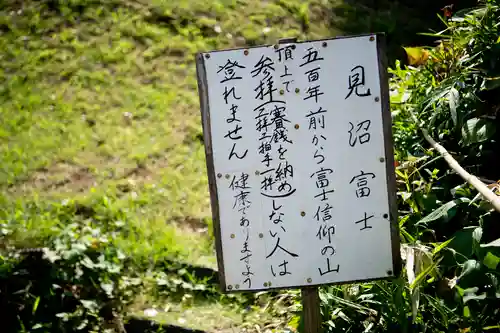 見沼富士
五百年前から富士信仰の山
頂上で
参拝(賽銭を納め二礼二拍手一拝)しない人は
登れません
健康でありますよう